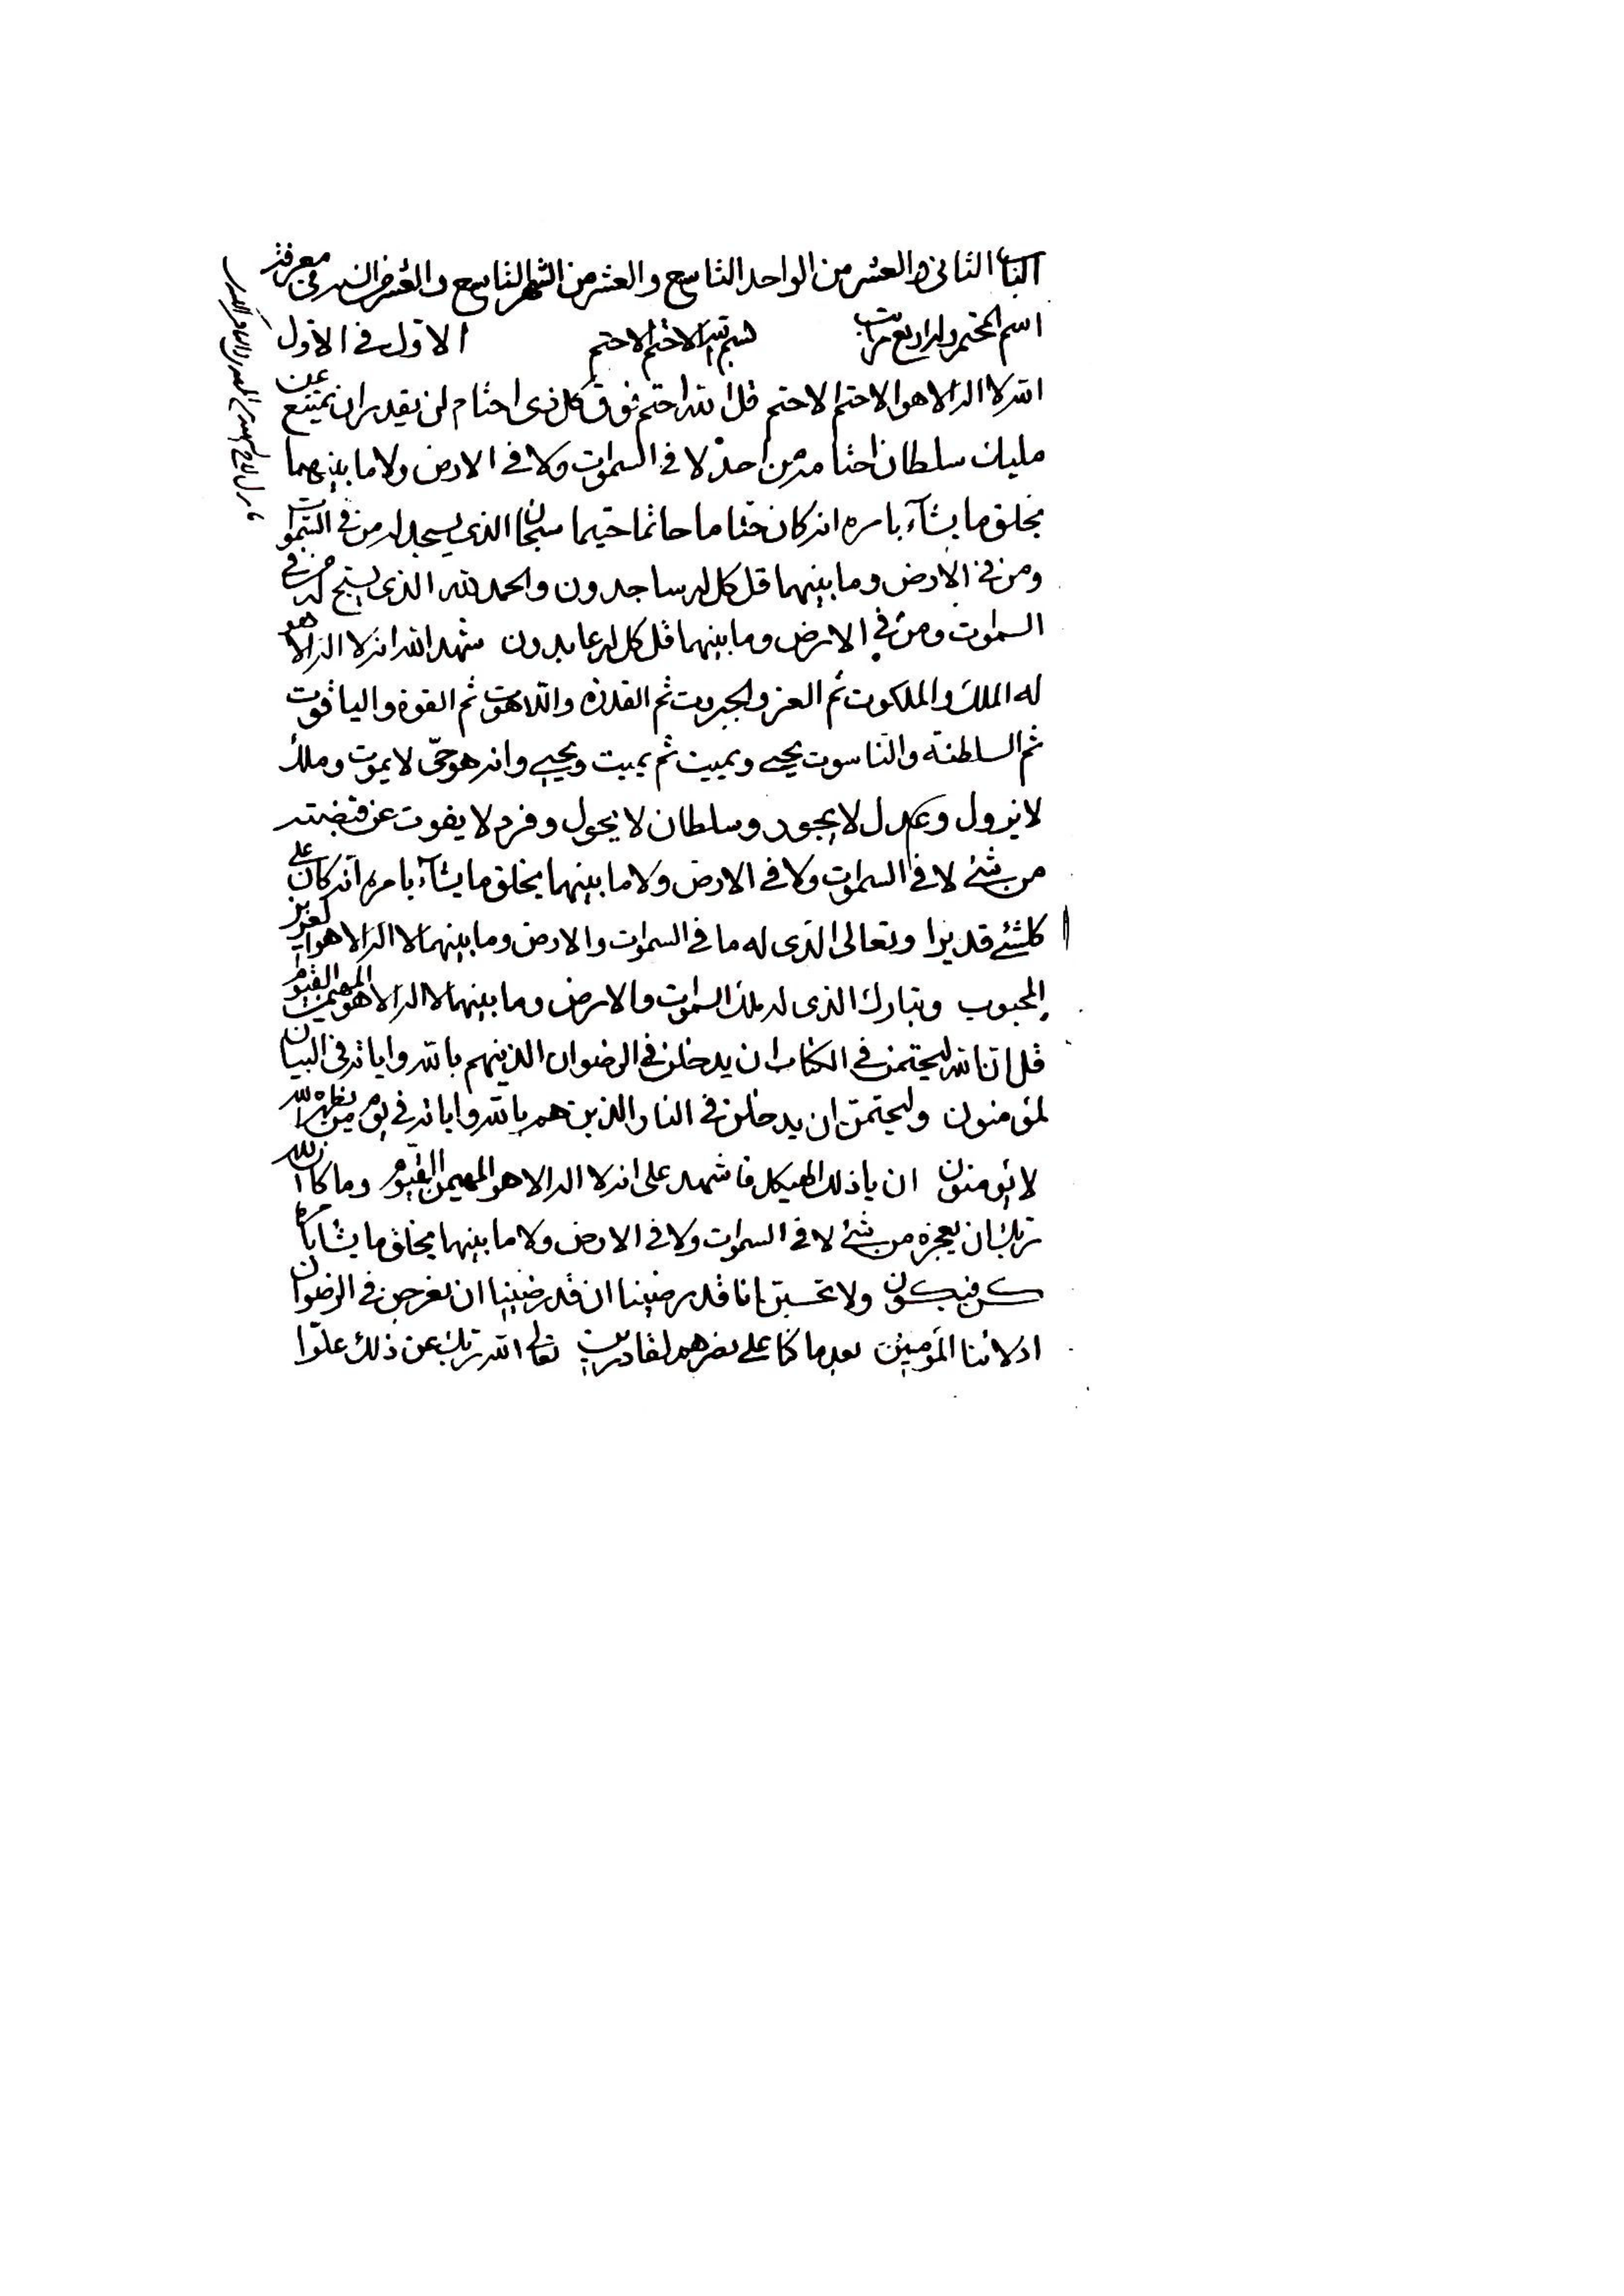 الباب الثانی والعشر من الواحد التاسع والعشر من الشهر التاسع والعشر من السنة فی معرفة
اسم المحتم وله اربع مراتب بسم الله الاحتم الاحتم الاول فی الاول
الله لا اله الا هو الاحتم الاحتم قل الله احتم فوق کل ذی احتام لن یقدر ان یمتنع عن
ملیك سلطان احتامه من احد لا فی السموات ولا فی الارض ولا ما بینهما
یخلق ما یشآء بامره انه کان حتاما حاتما حتیما سبحان الذی یسجد له من فی السموات
ومن فی الارض وما بینهما قل کل له ساجدون والحمد لله الذی یسبح له من فی
السموات ومن فی الارض وما بینهما قل کل له عابدون شهد الله انه لا اله الا هو
له الملك والملکوت ثم العز والجبروت ثم القدرة واللاهوت ثم القوة والیاقوت
ثم السلطنة والناسوت یحیی ویمیت ثم یمیت ویحیی وانه هو حی لا یموت وملك
لا یزول وعدل لا یجور وسلطان لا یحول وفرد لا یفوت عن قبضته
من شئ لا فی السموات ولا فی الارض ولا ما بینهما یخلق ما یشآء بامره انه کان علی
کلشئ قدیرا وتعالی الذی له ما فی السموات والارض وما بینهما لا اله الا هو العزیز
المحبوب وتبارك الذی له ملك السموات والارض وما بینهما لا اله الا هو المهیمن القیوم
قل ان الله لیحتمن فی الکتاب ان یدخلن فی الرضوان الذینهم بالله وایاته فی البیان
لمؤمنون ولیحتمن ان یدخلن فی النار الذین هم بالله وایاته فی یوم من یظهره الله
لا یؤمنون ان یا ذلك الهیکل فاشهد علی انه لا اله الا هو المهیمن القیوم وما کان الله
ربك ان یعجزه من شئ لا فی السموات ولا فی الارض ولا ما بینهما یخلق ما یشا بامره
کن فیکون ولا تحسبن انا قد رضینا ان قد رضینا ان نعرجن فی الرضوان
ادلائنا المؤمنین بعد ما کنا علی نصرهم لقادرین تعالی الله ربك عن ذلك علوا